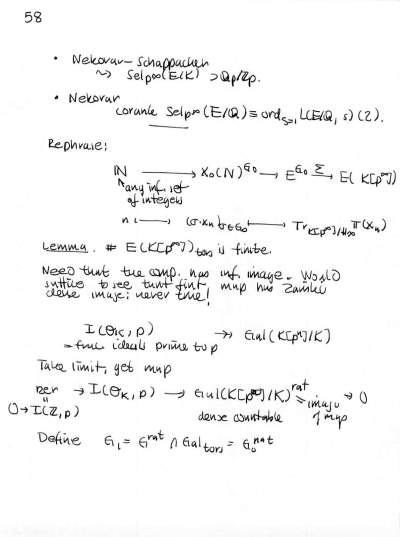 58
• Nekovar-Schappacher
⇝ Selp∞(E/K) > Qp/Zp.
• Nekovar
corank Selp∞(E/Q) ≡ ord_{s=1} L(E/Q, s) (2).
Rephrase:
N → X₀(N)^{G₀} → E^{G₀} →^Σ E(K[p^∞])
↑ any inf. set
of integers
n ↦ (σ·x_n)_{σ∈G₀} ↦ Tr_{K[p^∞]/H_∞} π(x_n)
Lemma. # E(K[p^∞])_{tors} is finite.
Need that the comp. has inf. image. Would
suffice to see that first map has Zariski
dense image; never true!
I(O_K, p) ↠ Gal(K[p^n]/K)
= frac ideals prime to p
Take limit, get map
ker → I(O_K, p) → Gal(K[p^∞]/K)^{rat} → 0
= image of map
0 → I(Z, p)
dense countable
Define G₁ = G^{rat} ∩ Gal_{tors} = G₀^{rat}